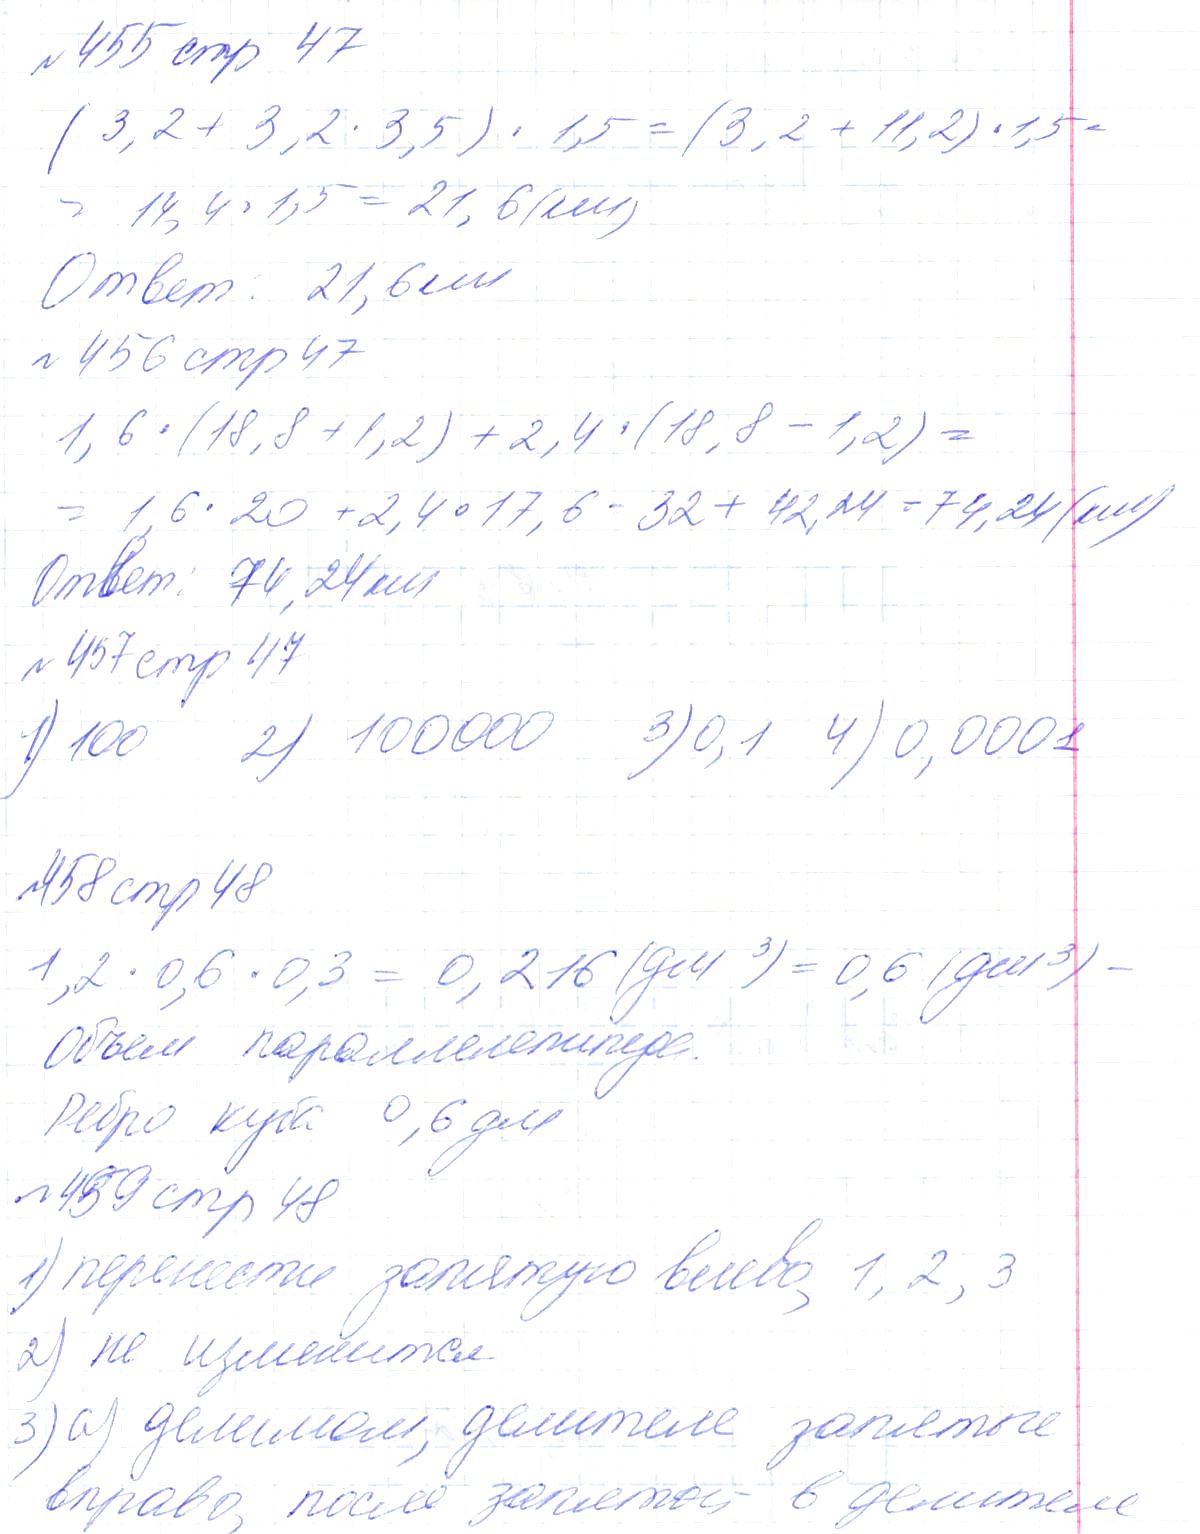 №455 стр 47
(3,2 + 3,2 · 3,5) · 1,5 = (3,2 + 11,2) · 1,5 =
= 14,4 · 1,5 = 21,6 (км)
Ответ: 21,6 км
№456 стр 47
1,6 · (18,8 + 1,2) + 2,4 · (18,8 - 1,2) =
= 1,6 · 20 + 2,4 · 17,6 = 32 + 42,24 = 74,24 (км)
Ответ: 74,24 км
№457 стр 47
1) 100 2) 100000 3) 0,1 4) 0,0001
№458 стр 48
1,2 · 0,6 · 0,3 = 0,216 (дм³) = 0,6 (дм³) -
Объем параллелепипеда.
Ребро куба 0,6 дм
№459 стр 48
1) перенести запятую влево, 1, 2, 3
2) не изменится
3) а) делимом, делителе запятые
вправо, после запятой в делителе